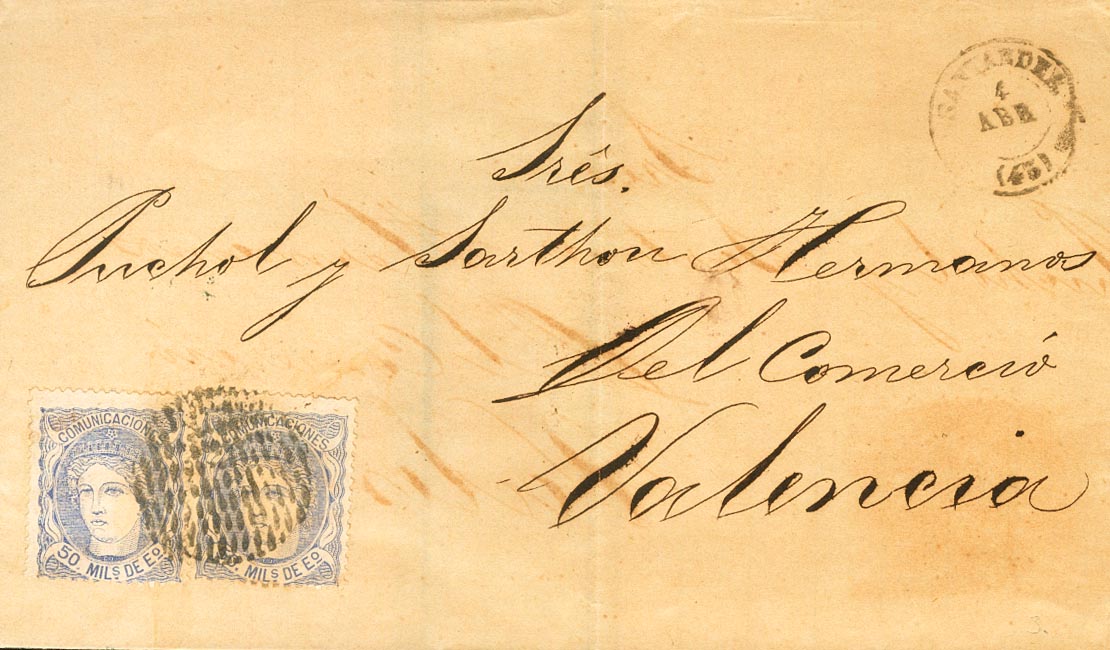 SANTANDER
4
ABR
(43)
Srés.
Puchol y Sarthou Hermanos
Del Comerció
Valencia
COMUNICACIONES
50. MILS DE Eo.
COMUNICACIONES
MILS DE Eo.
3.